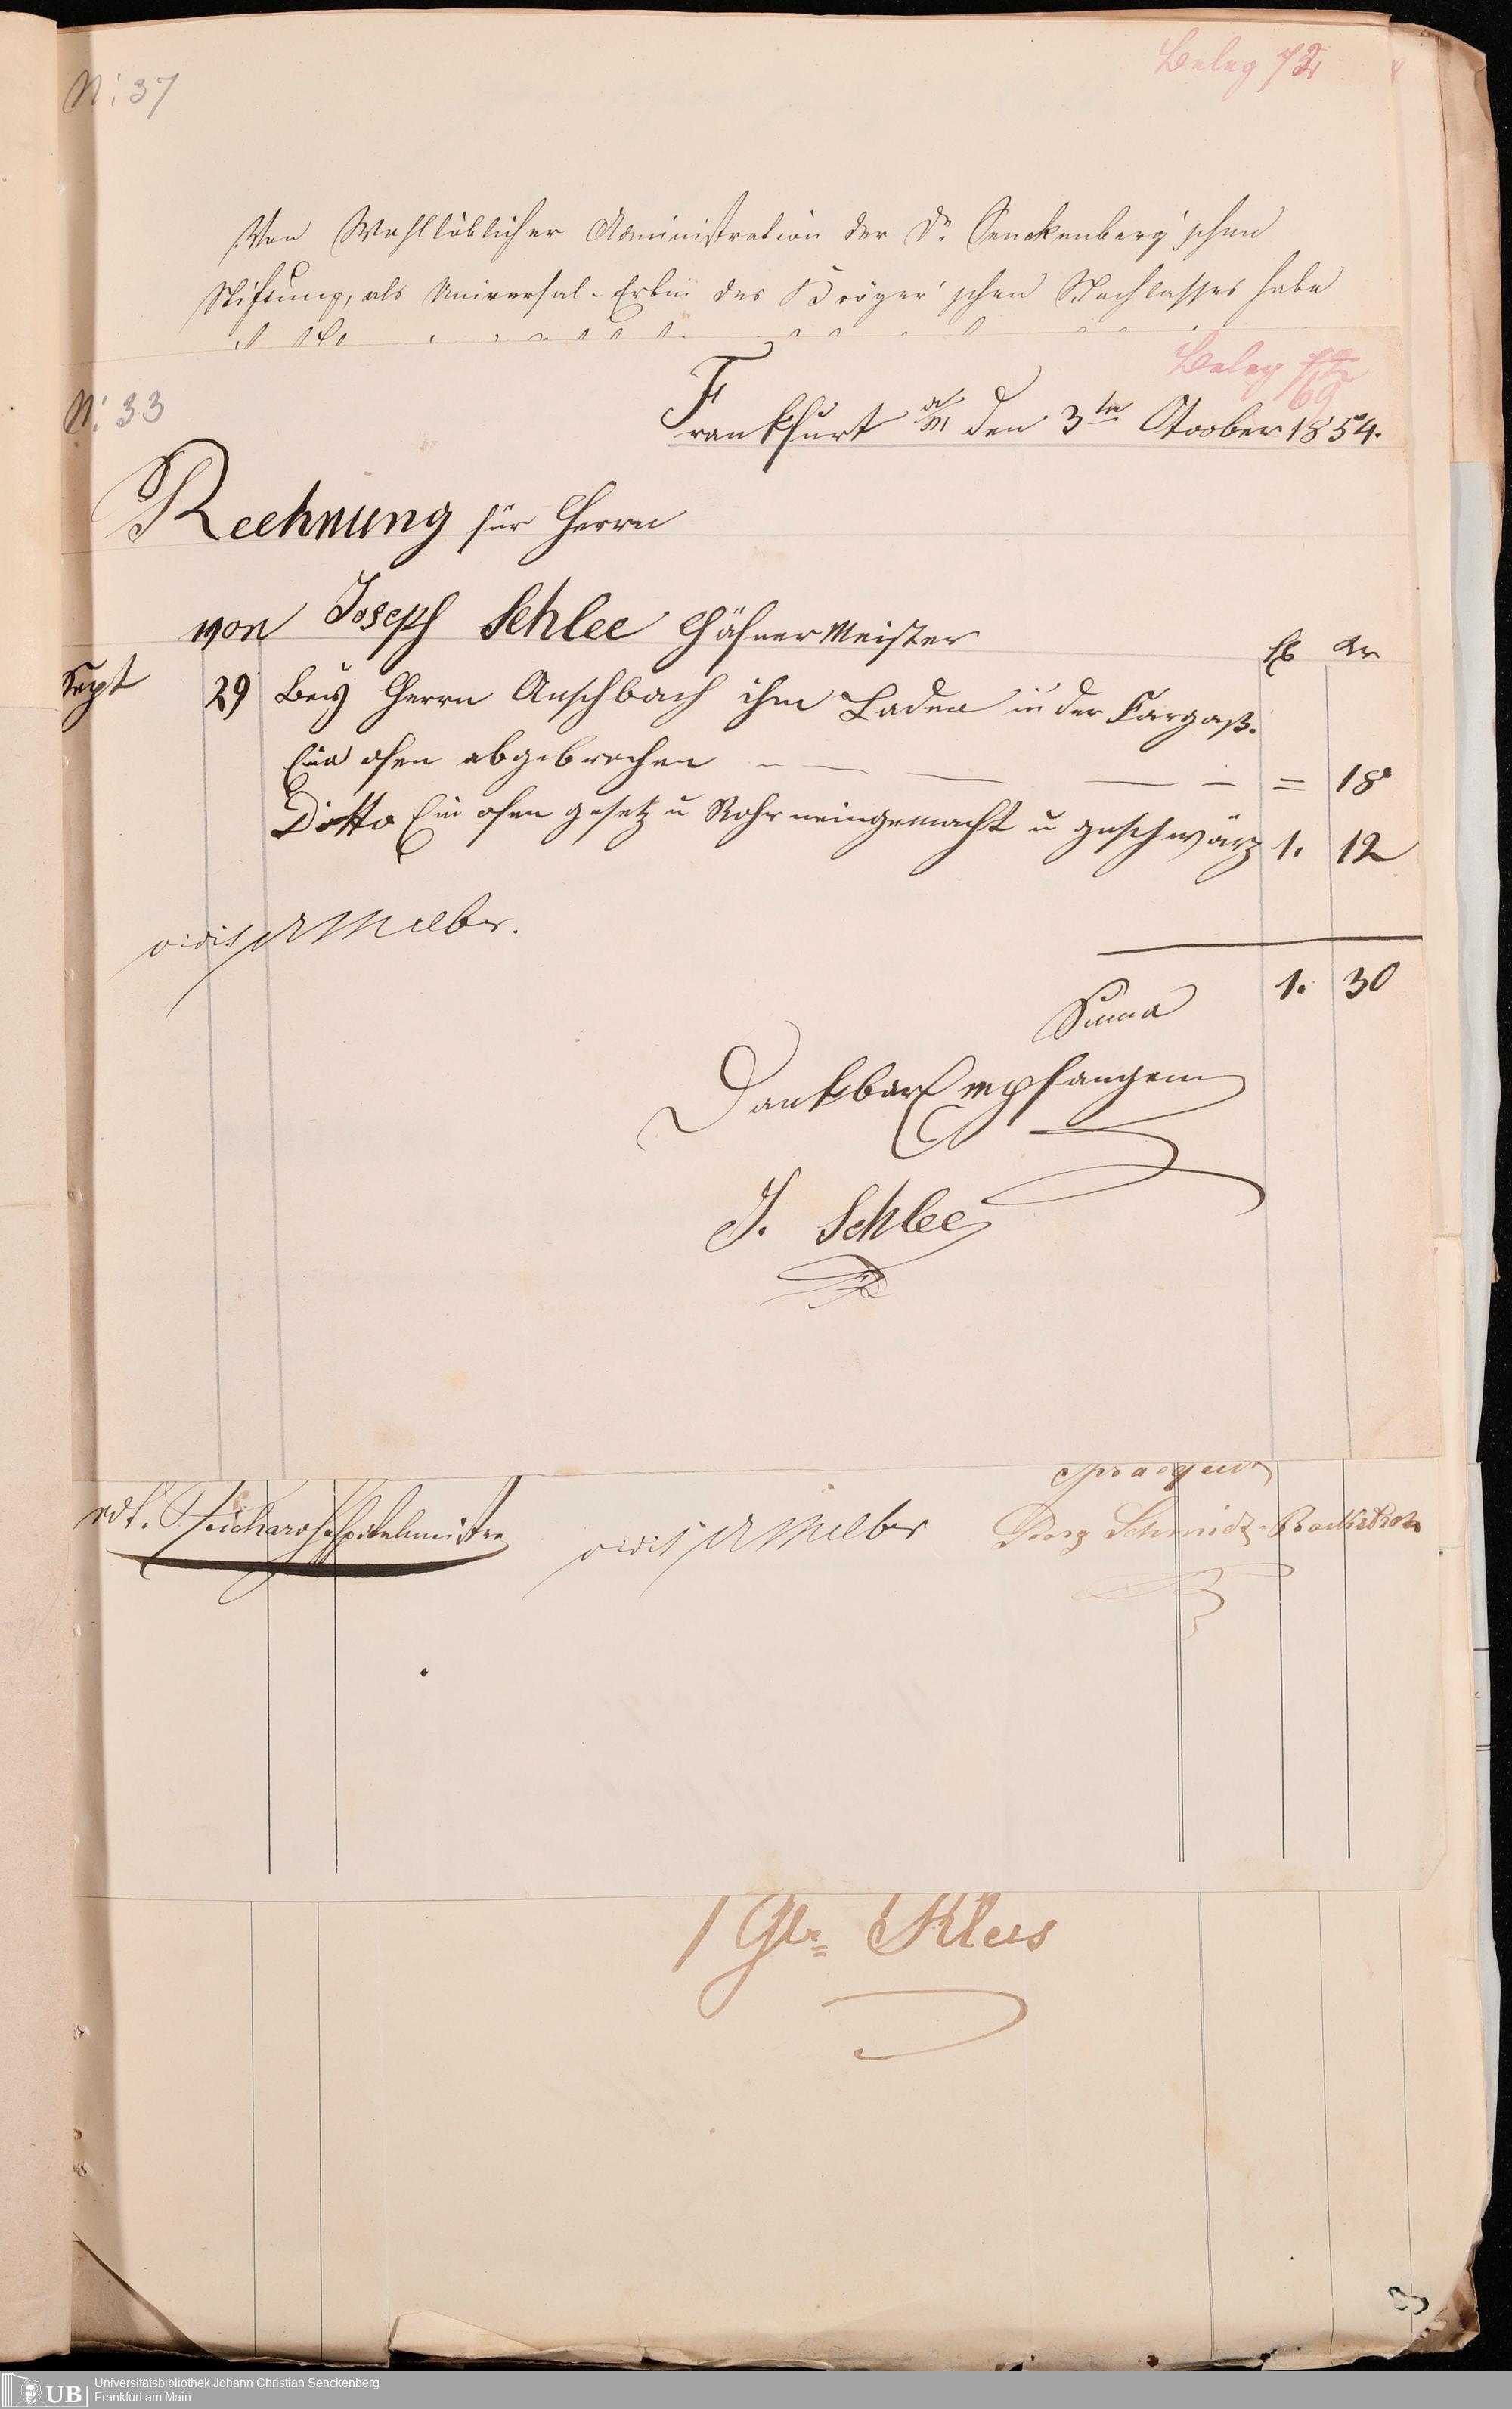 N: 37
Beleg 72
Von Wohllöblicher Administration der Dr. Senckenberg'schen
Stiftung, als Universal-Erbin des Kröger'schen Nachlasses habe
Beleg
69
N: 33
Frankfurt a/M den 3ten Octoober 1854.
Rechnung für Herrn
von Joseph Schlee Häfner Meister
fl Kr
Sept 29 Bey Herrn Anschbach ihm Laden in der Fargaß.
Ein ofen abgebrochen — — — — — = 18
Ditto Ein ofen gesetz u Rohr neingemacht u geschwärz 1. 12
vidit Melber.
Suma 1. 30
Dankbar Empfangen
J. Schlee
vdt. Reichard Spitalmeister
vidit Melber
Schmidt
Gbr= Klees
UB
Universitätsbibliothek Johann Christian Senckenberg
Frankfurt am Main